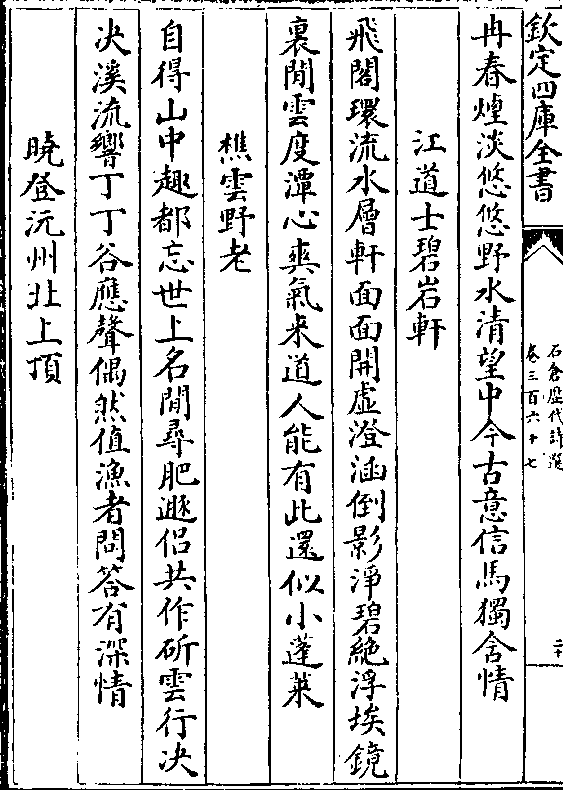 欽定四庫全書
石倉歷代詩選
卷三百六十七
冉春煙淡悠悠野水清望中今古意信馬獨含情
江道士碧岩軒
飛閣環流水層軒面面開虛澄涵倒影淨碧絶浮埃鏡
裏閒雲度潭心爽氣来道人能有此還似小蓬萊
樵雲野老
自得山中趣都忘世上名閒尋肥遯侣共作斫雲行决
决溪流響丁丁谷應聲偶然值漁者問答有深情
曉登沅州北上頂